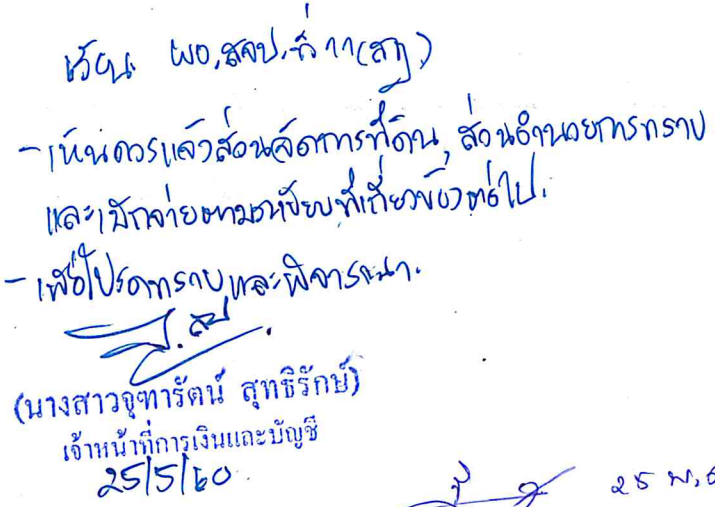 เรียน ผอ.สจป.ที่ 11 (สฎ)
- เห็นควรแจ้งส่วนจัดการที่ดิน, ส่วนอำนวยการทราบ
และเบิกจ่ายตามระเบียบที่เกี่ยวข้องต่อไป.
- เพื่อโปรดทราบและพิจารณา.
(นางสาวจุฑารัตน์ สุทธิรักษ์)
เจ้าหน้าที่การเงินและบัญชี
25/5/60
25 พ.ค